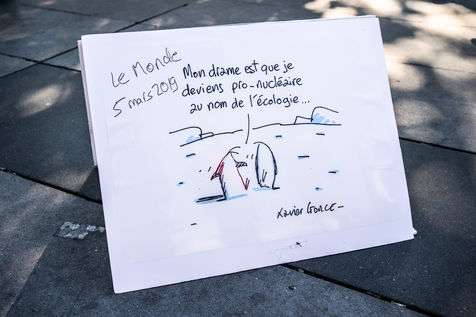 Le Monde
5 mars 2019
Mon drame est que je
deviens pro-nucléaire
au nom de l'écologie...
Xavier GORCE